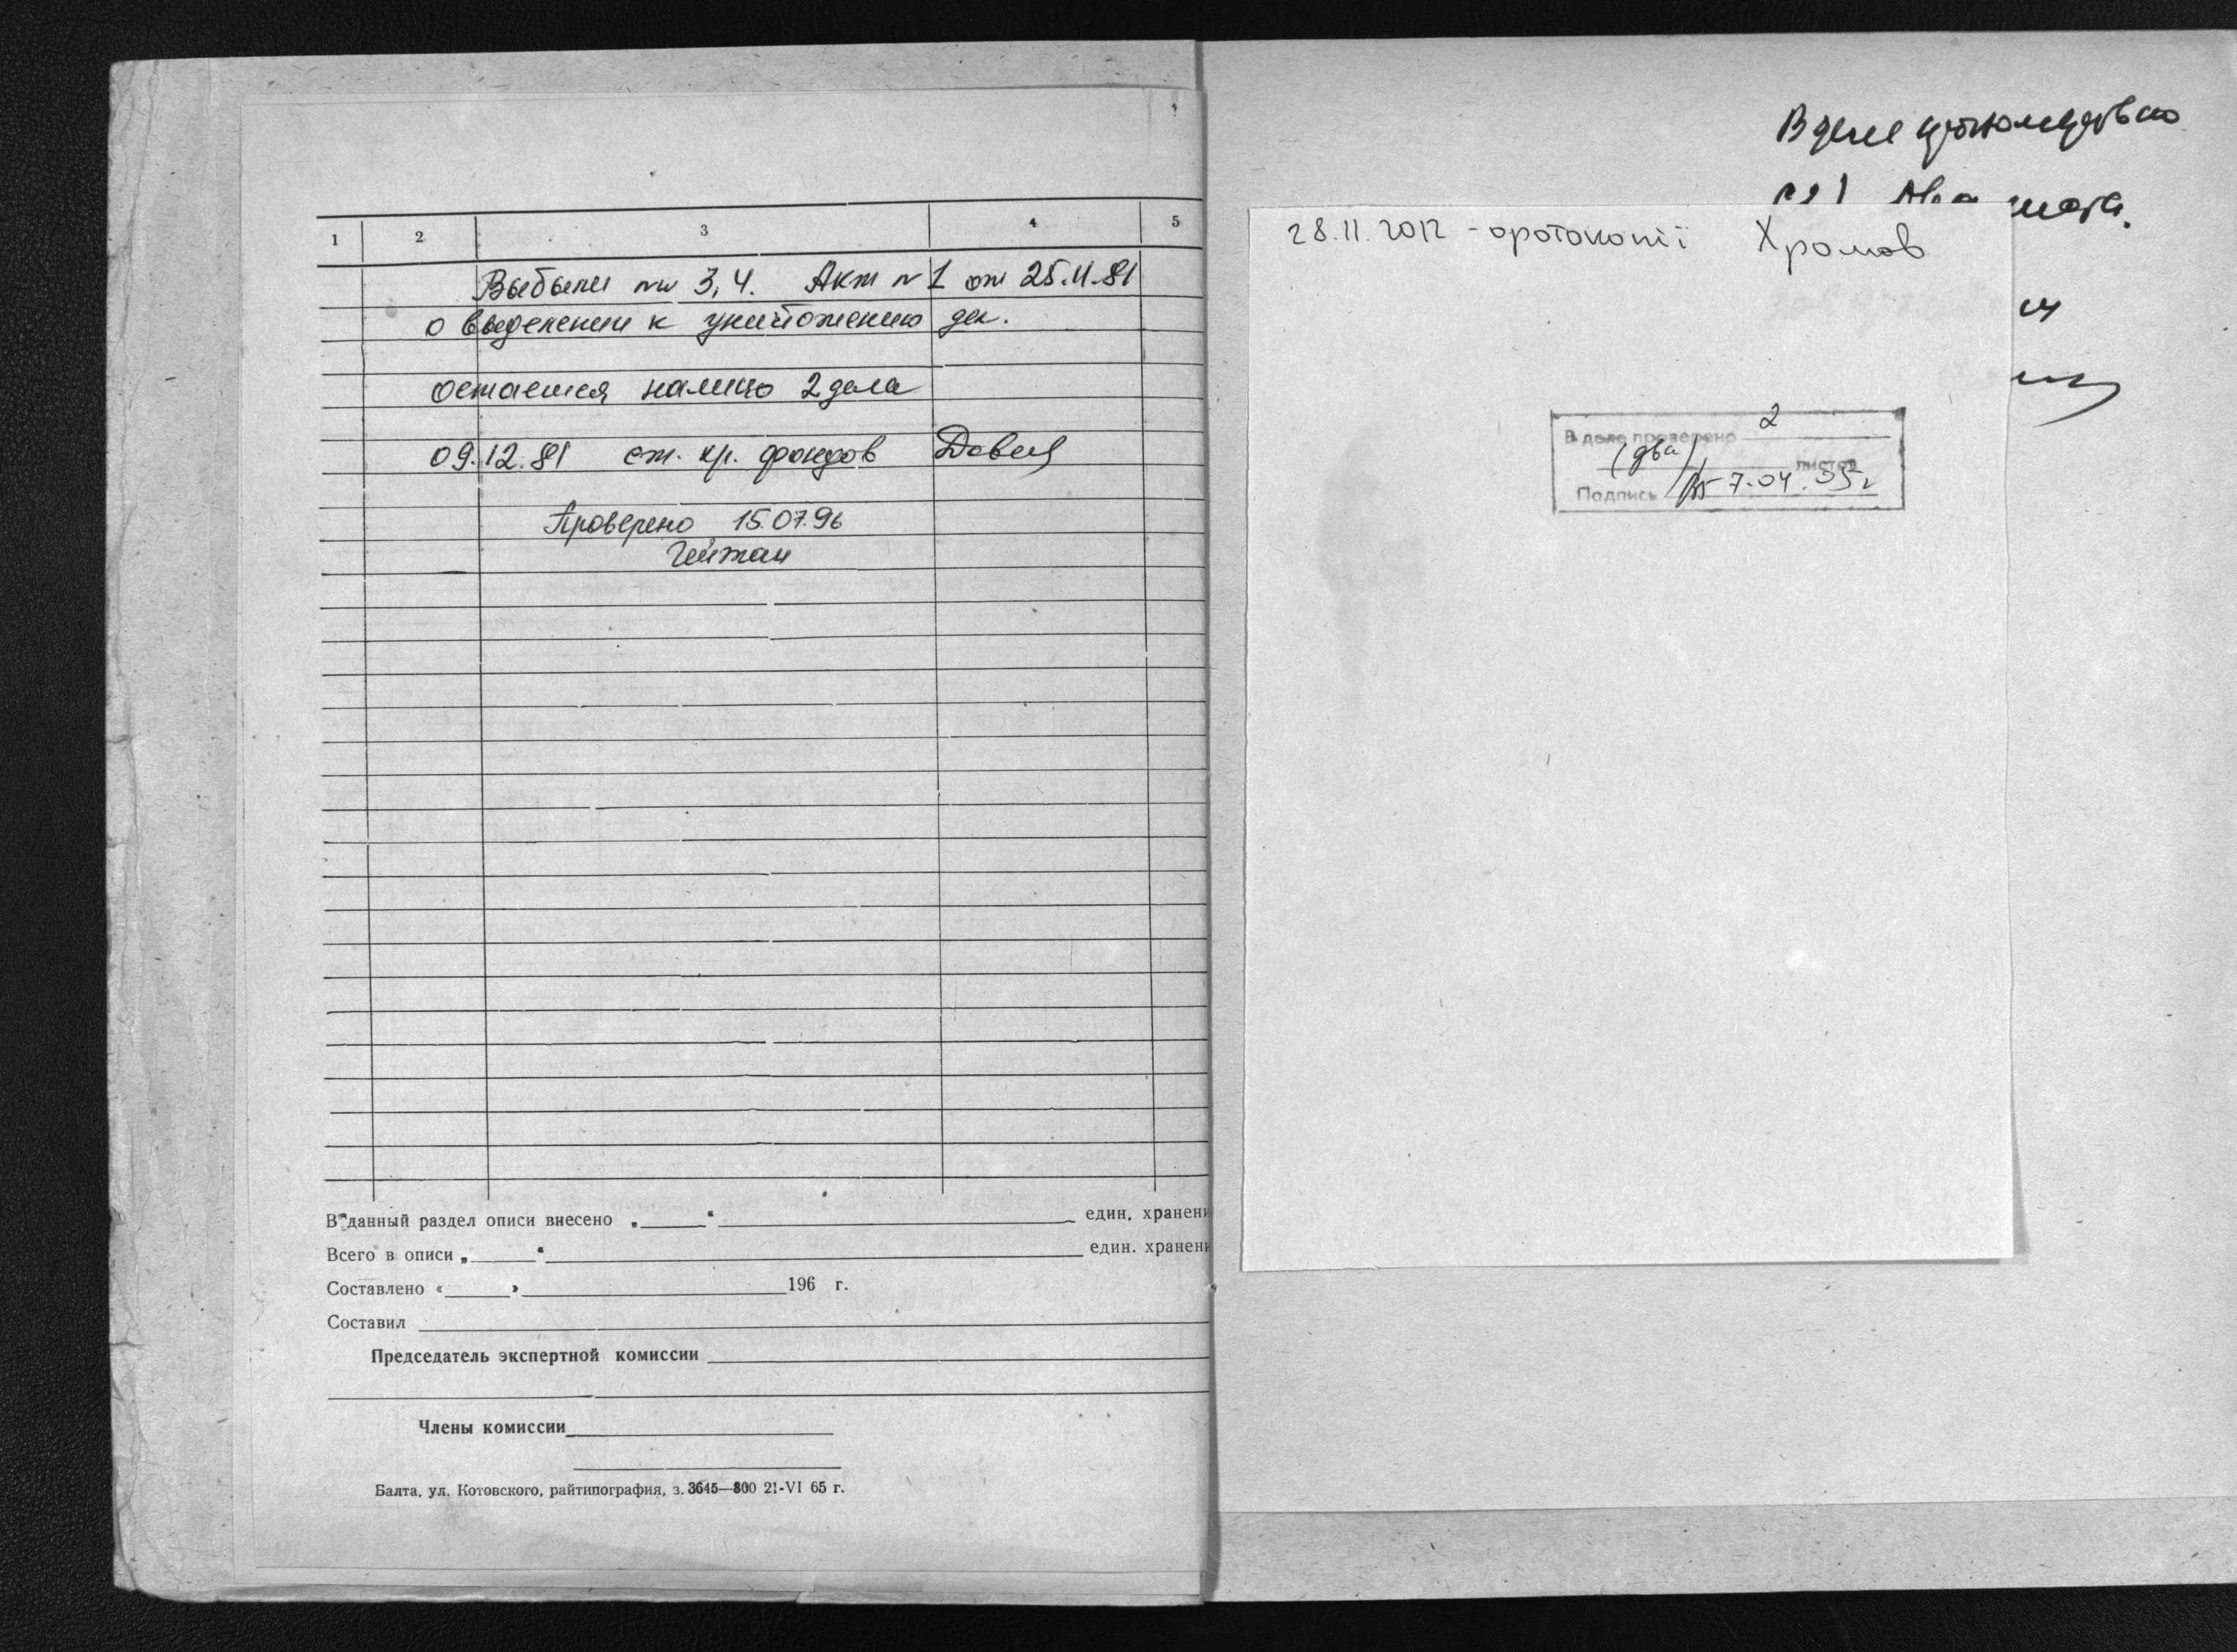 1 2 3 4 5
Выбыли №№ 3, 4. Акт № 1 от 25.11.81
о выделении к уничтожению дел.
остается налицо 2 дела
09.12.81 ст. хр. фондов
Проверено 15.07.96
В данный раздел описи внесено „ “ един. хранени
Всего в описи „ “ един. хранени
Составлено « » 196 г.
Составил
Председатель экспертной комиссии
Члены комиссии
Балта, ул. Котовского, райтипография, з. 3645—800 21-VI 65 г.
В деле пронумеровано
28.11.2012 - фотокопії Хромов
В деле проверено 2
(два) листов
Подпись 7.04.05г